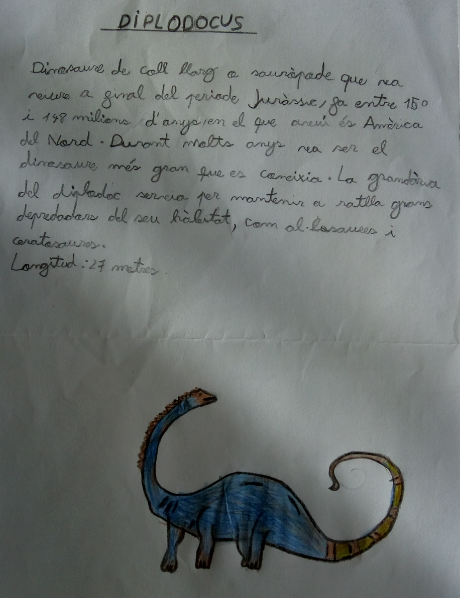 DIPLODOCUS
Dinosaure de coll llarg o sauròpode que va
viure a final del període Juràssic, fa entre 150
i 148 milions d'anys, en el que avui és Amèrica
del Nord. Durant molts anys va ser el
dinosaure més gran que es coneixia. La grandària
del diplodoc servia per mantenir a ratlla grans
depredadors del seu hàbitat, com al·losaures i
ceratosaures.
Longitud: 27 metres.